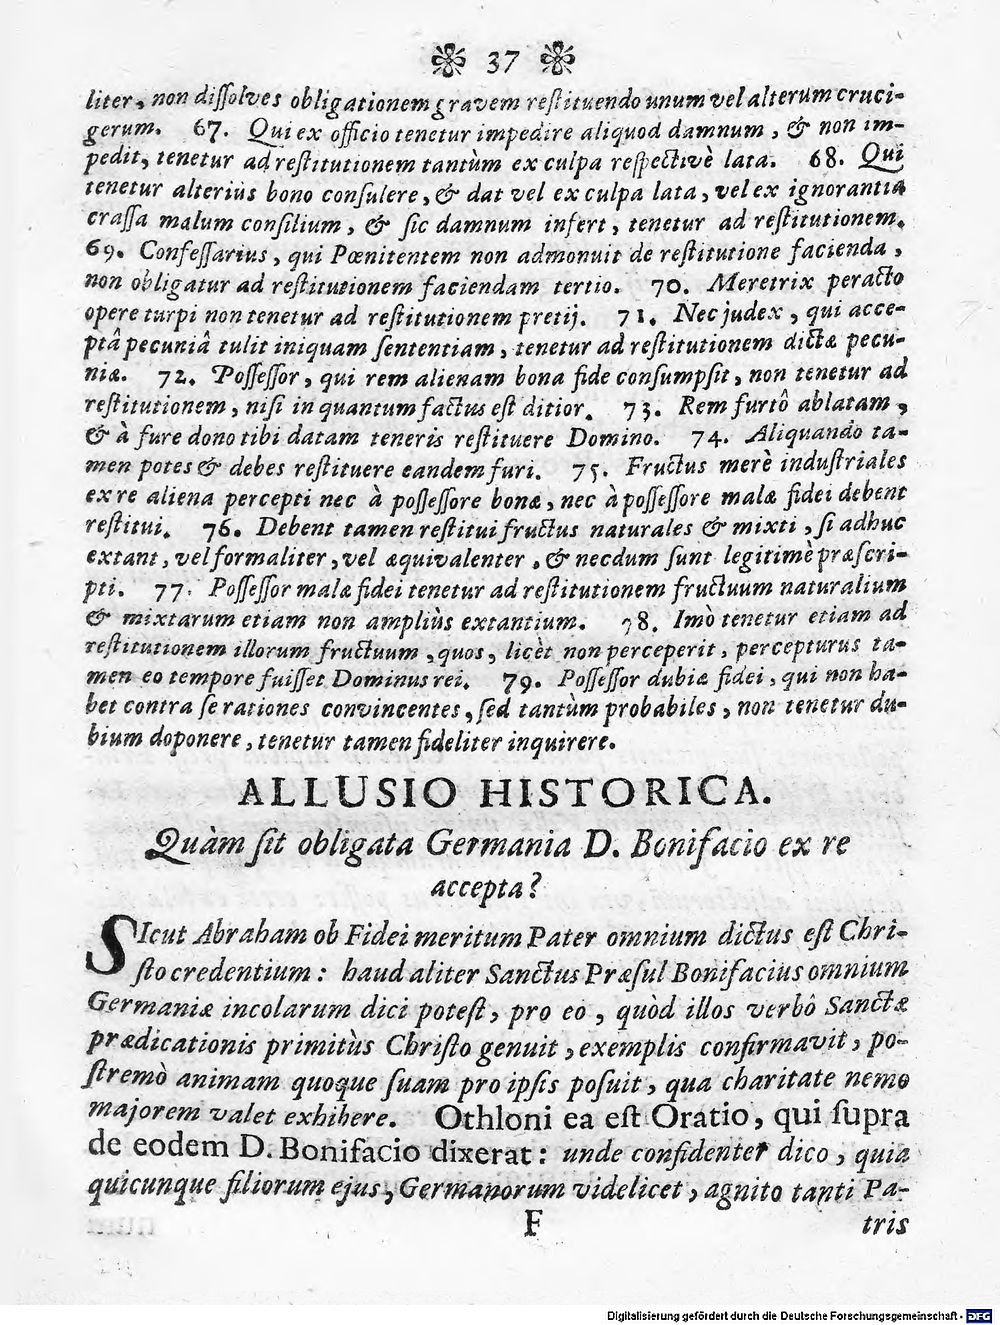 37
liter, non dissolves obligationem gravem restituendo unum vel alterum cruci-
gerum. 67. Qui ex officio tenetur impedire aliquod damnum, & non im-
pedit, tenetur ad restitutionem tantùm ex culpa respectivè lata. 68. Qui
tenetur alteriùs bono consulere, & dat vel ex culpa lata, vel ex ignorantia
crassa malum consilium, & sic damnum infert, tenetur ad restitutionem.
69. Confessarius, qui Pœnitentem non admonuit de restitutione facienda,
non obligatur ad restitutionem faciendam tertio. 70. Meretrix peracto
opere turpi non tenetur ad restitutionem pretij. 71. Nec judex, qui acce-
ptâ pecuniâ tulit iniquam sententiam, tenetur ad restitutionem dictæ pecu-
niæ. 72. Possessor, qui rem alienam bona fide consumpsit, non tenetur ad
restitutionem, nisi in quantum factus est ditior. 73. Rem furtô ablatam,
& à fure dono tibi datam teneris restituere Domino. 74. Aliquando ta-
men potes & debes restituere eandem furi. 75. Fructus merè industriales
ex re aliena percepti nec à possessore bonæ, nec à possessore malæ fidei debent
restitui. 76. Debent tamen restitui fructus naturales & mixti, si adhuc
extant, vel formaliter, vel æquivalenter, & necdum sunt legitimè præscri-
pti. 77. Possessor malæ fidei tenetur ad restitutionem fructuum naturalium
& mixtarum etiam non ampliùs extantium. 78. Imò tenetur etiam ad
restitutionem illorum fructuum, quos, licèt non perceperit, percepturus ta-
men eo tempore fuisset Dominus rei. 79. Possessor dubiæ fidei, qui non ha-
bet contra se rationes convincentes, sed tantùm probabiles, non tenetur du-
bium doponere, tenetur tamen fideliter inquirere.
ALLUSIO HISTORICA.
Quàm sit obligata Germania D. Bonifacio ex re
accepta?
SIcut Abraham ob Fidei meritum Pater omnium dictus est Chri-
sto credentium: haud aliter Sanctus Præsul Bonifacius omnium
Germaniæ incolarum dici potest, pro eo, quòd illos verbô Sanctæ
prædicationis primitùs Christo genuit, exemplis confirmavit, po-
stremò animam quoque suam pro ipsis posuit, qua charitate nemo
majorem valet exhibere. Othloni ea est Oratio, qui supra
de eodem D. Bonifacio dixerat: unde confidenter dico, quia
quicunque filiorum ejus, Germanorum videlicet, agnito tanti Pa-
F tris
Digitalisierung gefördert durch die Deutsche Forschungsgemeinschaft - DFG